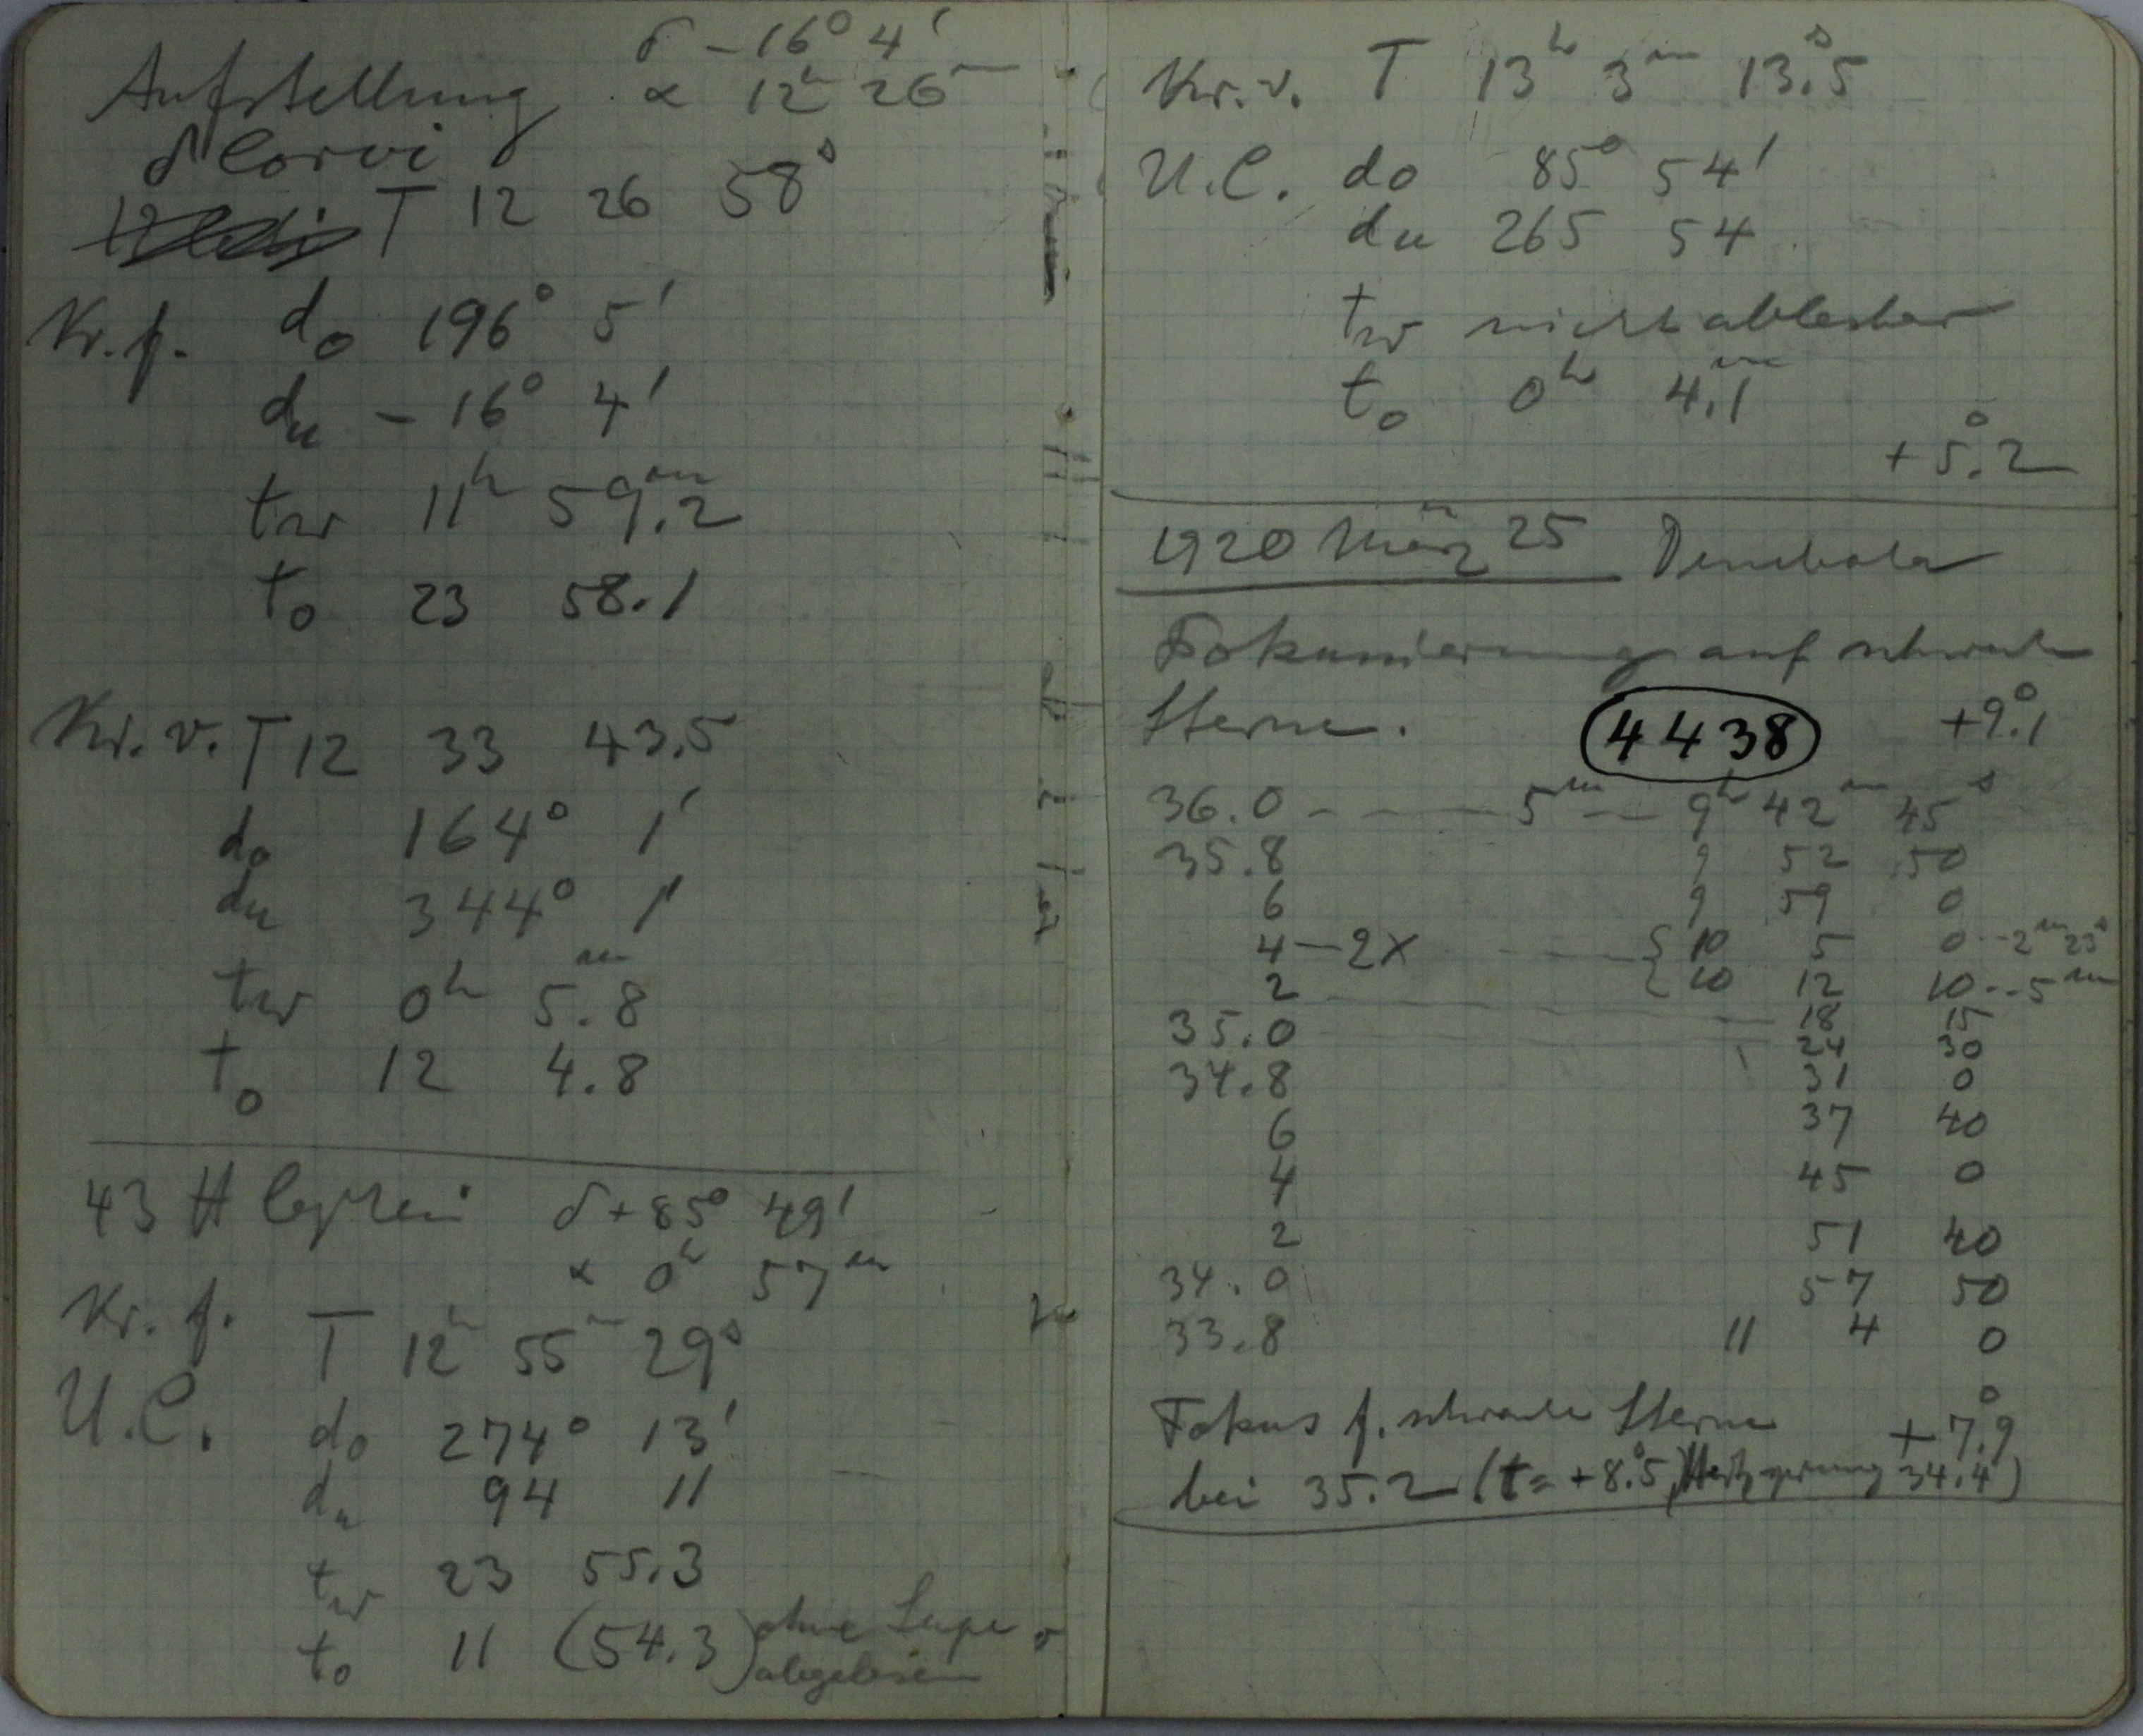 Aufstellung
δ -16° 4'
α 12h 26m
δ Corvi
T 12 26 58s
Kr. f. do 196° 5'
du -16° 4'
tw 11h 59.m2
to 23 58.1
Kr. v. T 12 33 43.5
do 164° 1'
du 344° 1'
tw 0h 5.m8
to 12 4.8
43 H Cephei δ+85° 49'
α 0h 57m
Kr. f. T 12h 55m 29s
U.C.
do 274° 13'
du 94 11
tw 23 55.3
to 11 (54.3) ohne Lupe
abgelesen
Kr. v. T 13h 3m 13.s5
U.C. do 85° 54'
du 265 54
tw nicht ablesbar
to 0h 4.m1
+5.°2
1920 März 25 Denebola
Fokussierung auf schwache
Sterne. 4438 +9.°1
36.0 - - - 5m - - 9h 42m 45s
35.8 9 52 50
6 9 59 0
4 - 2x - - { 10 5 0 - - 2m 23s
2 { 10 12 10 - - 5m
35.0 18 15
24 30
34.8 31 0
6 37 40
4 45 0
2 51 40
34.0 57 50
33.8 11 4 0
Fokus f. schwache Sterne +7.°9
bei 35.2 (t = +8.°5, 34.4)